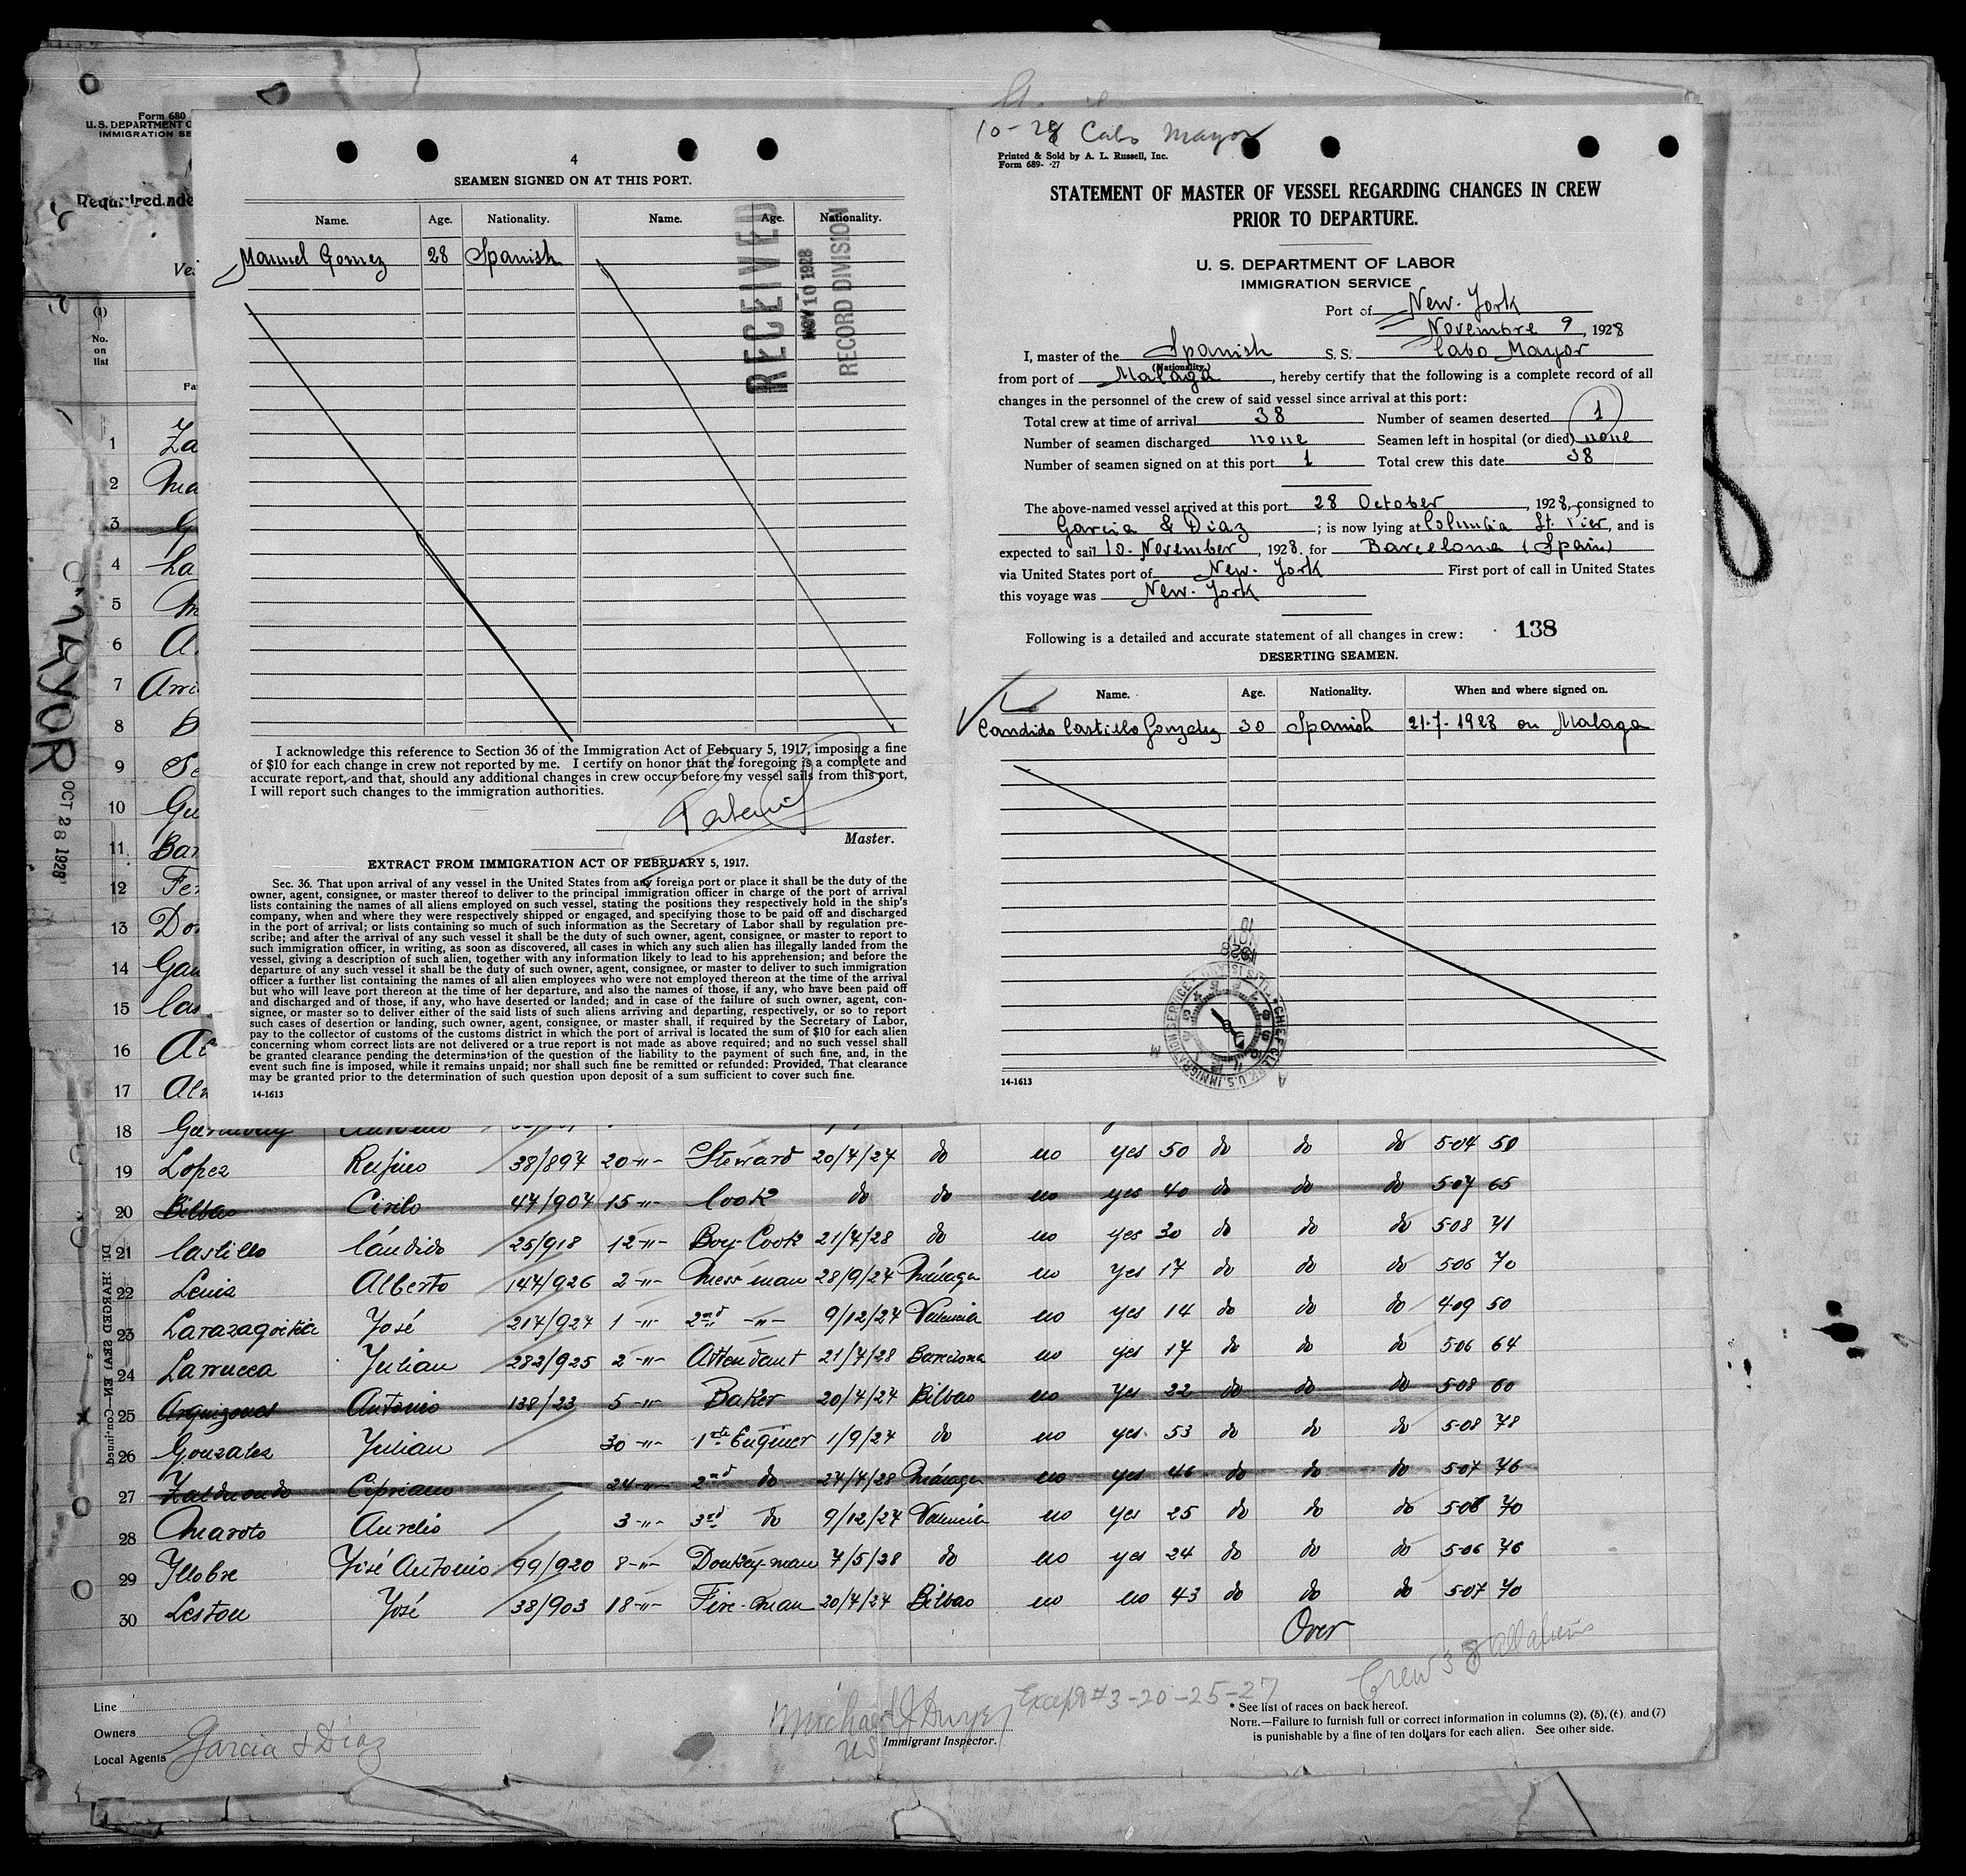 10-28 Cabo Mayor
Form 680
U. S. DEPARTMENT O
IMMIGRATION SE
Required
Ves
(1)
No.
on
list
Fa
4
SEAMEN SIGNED ON AT THIS PORT.
Name. Age. Nationality. Name. Age. Nationality.
Manuel Gomez 28 Spanish
RECEIVED
NOV 10 1928
RECORD DIVISION
I acknowledge this reference to Section 36 of the Immigration Act of February 5, 1917, imposing a fine
of $10 for each change in crew not reported by me. I certify on honor that the foregoing is a complete and
accurate report, and that, should any additional changes in crew occur before my vessel sails from this port,
I will report such changes to the immigration authorities.
Master.
EXTRACT FROM IMMIGRATION ACT OF FEBRUARY 5, 1917.
Sec. 36. That upon arrival of any vessel in the United States from any foreign port or place it shall be the duty of the
owner, agent, consignee, or master thereof to deliver to the principal immigration officer in charge of the port of arrival
lists containing the names of all aliens employed on such vessel, stating the positions they respectively hold in the ship's
company, when and where they were respectively shipped or engaged, and specifying those to be paid off and discharged
in the port of arrival; or lists containing so much of such information as the Secretary of Labor shall by regulation pre-
scribe; and after the arrival of any such vessel it shall be the duty of such owner, agent, consignee, or master to report to
such immigration officer, in writing, as soon as discovered, all cases in which any such alien has illegally landed from the
vessel, giving a description of such alien, together with any information likely to lead to his apprehension; and before the
departure of any such vessel it shall be the duty of such owner, agent, consignee, or master to deliver to such immigration
officer a further list containing the names of all alien employees who were not employed thereon at the time of the arrival
but who will leave port thereon at the time of her departure, and also the names of those, if any, who have been paid off
and discharged and of those, if any, who have deserted or landed; and in case of the failure of such owner, agent, con-
signee, or master so to deliver either of the said lists of such aliens arriving and departing, respectively, or so to report
such cases of desertion or landing, such owner, agent, consignee, or master shall, if required by the Secretary of Labor,
pay to the collector of customs of the customs district in which the port of arrival is located the sum of $10 for each alien
concerning whom correct lists are not delivered or a true report is not made as above required; and no such vessel shall
be granted clearance pending the determination of the question of the liability to the payment of such fine, and, in the
event such fine is imposed, while it remains unpaid; nor shall such fine be remitted or refunded: Provided, That clearance
may be granted prior to the determination of such question upon deposit of a sum sufficient to cover such fine.
14-1613
Printed & Sold by A. L. Russell, Inc.
Form 689- -27
STATEMENT OF MASTER OF VESSEL REGARDING CHANGES IN CREW
PRIOR TO DEPARTURE.
U. S. DEPARTMENT OF LABOR
IMMIGRATION SERVICE
Port of New-York
Novembre 9, 1928
I, master of the Spanish S. S. Cabo Mayor
(Nationality)
from port of Malaga, hereby certify that the following is a complete record of all
changes in the personnel of the crew of said vessel since arrival at this port:
Total crew at time of arrival 38 Number of seamen deserted 1
Number of seamen discharged none Seamen left in hospital (or died) none
Number of seamen signed on at this port 1 Total crew this date 38
The above-named vessel arrived at this port 28 October, 1928, consigned to
Garcia & Diaz; is now lying at Columbia St. Pier, and is
expected to sail 10-November, 1928. for Barcelona (Spain)
via United States port of New-York First port of call in United States
this voyage was New-York
Following is a detailed and accurate statement of all changes in crew: 138
DESERTING SEAMEN.
Name. Age. Nationality. When and where signed on.
Candido Castillo Gonzalez 30 Spanish 21-7-1928 on Malaga
14-1613
MAYOR
OCT 28 1928
1 Za
2 Ma
3 G
4 La
5 M
6 A
7 Arri
8
9
10 Gu
11 Bar
12 Fer
13 Do
14 Gau
15 Cas
16
17 Al
18
19 Lopez Rufino 38/897 20-"- Steward 20/4/27 do no yes 50 do do do 5-04 50
20 Bilbao Cirilo 47/904 15-"- Cook do do no yes 40 do do do 5-07 65
21 Castillo Cándido 25/918 12-"- Boy-Cook 21/4/28 do no yes 30 do do do 5-08 71
22 Alberto 147/926 2-"- Mess man 28/9/27 Málaga no yes 17 do do do 5-06 70
23 Larazagoitia José 217/927 1-"- 2nd -"- 9/12/27 Valencia no yes 14 do do do 4-09 50
24 Larrucea Julian 282/925 2-"- Attendant 21/4/28 Barcelona no yes 17 do do do 5-06 64
25 Antonio 138/23 5-"- Baker 20/4/27 Bilbao no yes 22 do do do 5-08 60
26 Gonzalez Julian 30-"- 1st Enginer 1/9/27 do no yes 53 do do do 5-08 78
27 Zalduondo Cipriano 24-"- 2nd do 27/4/28 Málaga no yes 46 do do do 5-07 76
28 Maroto Aurelio 3-"- 3rd do 9/12/27 Valencia no yes 25 do do do 5-08 70
29 Illobre José Antonio 99/920 8-"- Donkey-man 7/5/28 do no yes 24 do do do 5-06 76
30 Leston José 38/903 18-"- Fire-man 20/4/27 Bilbao no no 43 do do do 5-07 70
Over
Crew 38 all aliens
Except #3-20-25-27
Line
Owners
Local Agents Garcia & Diaz
Michael J Dwyer
Immigrant Inspector.
* See list of races on back hereof.
NOTE.—Failure to furnish full or correct information in columns (2), (5), (6), and (7)
is punishable by a fine of ten dollars for each alien. See other side.